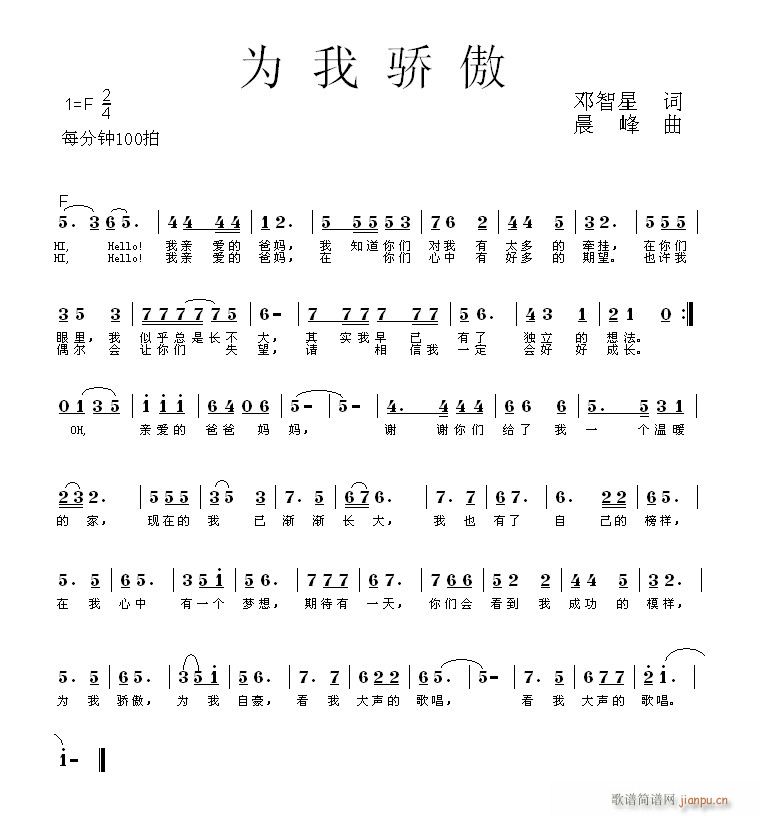 为我骄傲
1=F 2/4
邓智星 词
每分钟100拍
晨峰 曲
F
5. 3 6 5. | 4 4 4 4 | 1 2. | 5 5 5 5 3 | 7 6 2 | 5 4 4 | 3 2. | 5 5 5 |
HI, Hello! 我亲 爱的 爸妈, 我 知道你们 对我 有 太多 的 牵挂, 在你们
HI, Hello! 我亲 爱的 爸妈, 在 你们 心中 有 好多 的 期望。 也许我
3 5 3 | 7 7 7 7 7 5 | 6 - | 7 7 7 7 7 7 | 5 6. | 4 3 1 | 2 1 0 :|
眼里, 我 似乎总是长不 大, 其 实我早已 有了 独立 的 想法。
偶尔 会 让你们 失 望, 请 相信我 一定 会好 好 成长。
0 1 3 5 | i i i | 6 4 0 6 | 5 - | 5 - | 4. 4 4 4 | 6 6 6 | 5. 5 3 1 |
OH, 亲爱的 爸爸 妈妈, 谢 谢你们 给了 我 一 个温暖
2 3 2. | 5 5 5 | 3 5 3 | 7. 5 | 6 7 6. | 7. 7 | 6 7 | 6. 2 2 | 6 5. |
的 家, 现在的 我 已 渐 渐 长 大, 我 也 有了 自 己的 榜样,
5. 5 | 6 5. | 3 5 i | 5 6. | 7 7 7 | 6 7. | 7 6 6 | 5 2 2 | 4 5 4 | 3 2. |
在 我 心中 有一个 梦想, 期待有 一天, 你们会 看到 我 成功 的 模样,
5. 5 | 6 5. | 3 5 i | 5 6. | 7. 5 | 6 2 2 | 6 5. | 5 - | 7. 5 | 6 7 7 | 2 i. |
为 我 骄傲, 为 我 自豪, 看 我 大声的 歌唱, 看 我 大声的 歌唱。
i - ‖
歌谱简谱网 jianpu.cn